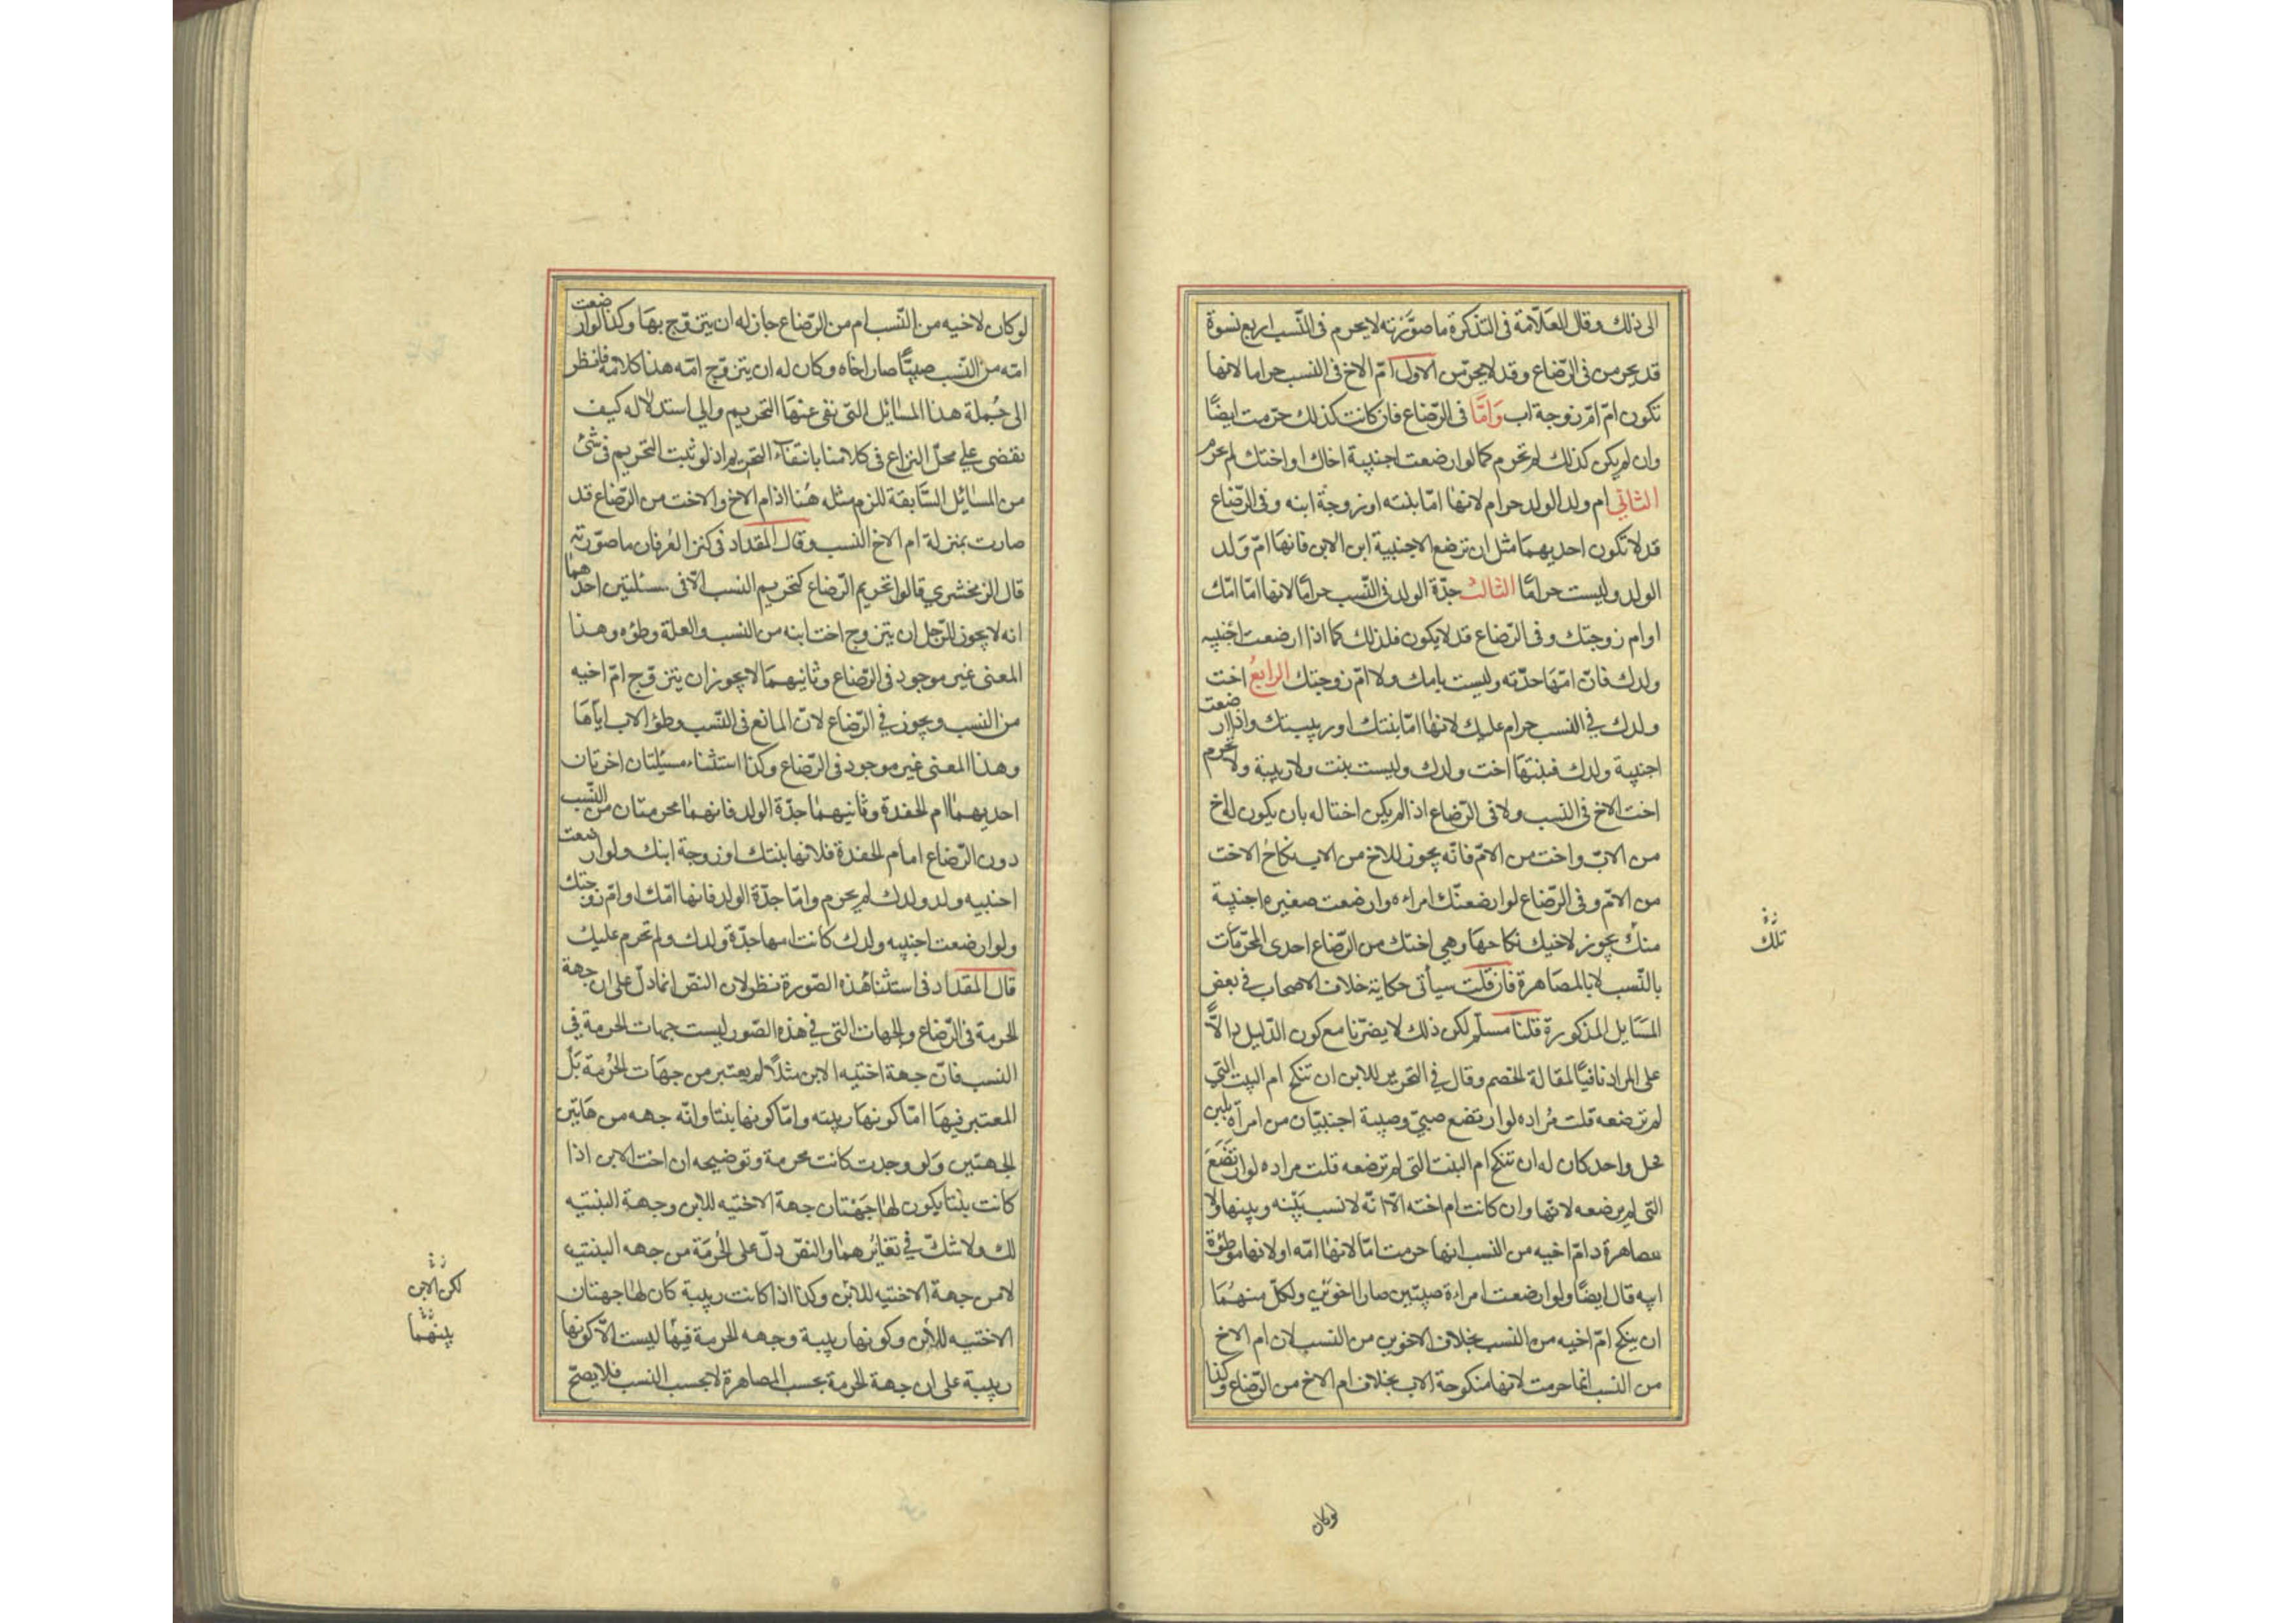 الى ذلك وقال العلامة فى التذكرة ما صورته لا يحرم فى النسب اربع نسوة
قد يحرمن فى الرضاع وقد لا يحرمن الاول امّ الاخ فى النسب حراما لانها
تكون امّ امّ زوجة اب وَامّا فى الرّضاع فان كانت كذلك حرمت ايضًا
وان لم يكن كذلك لم تحرم كما لو ارضعت اجنبية اخاك او اختك لم تحرم
الثانى ام ولد الولد حرام لانها امّا بنته او زوجة ابنه وفى الرّضاع
قد لا تكون احديهما مثل ان ترضع الاجنبية ابن الابن فانها امّ وَلد
الولد وليست حرامًا الثالث جدّة الولد فى النّسب حرامًا لانها امّا امّك
او ام زوجتك وفى الرّضاع قد لا يكون فلذلك كما اذا ارضعت اجنبيه
ولدك فانّ امّها جدّته وليست بامك ولا امّ زوجتك الرابعُ اخت
ولدك في النسب حرام عليك لانها امّا بنتك او ربيبتك واذا ارضعت
اجنبية ولدك فبنتها اخت ولدك وليست بنت ولا ربيبة ولا تحرم
اخت الاخ فى النسب ولا فى الرّضاع اذا لم يكن اختا له بان يكون له اخ
من الابّ واخت من الامّ فانّه يجوز للاخ من الاب نكاحُ الاخت
من الامّ وفى الرّضاع لو ارضعتك امراءه وارضعت صغيره اجنبية
منكْ يجوز لاخيك نكاحها وهي اختك من الرّضاع احدى المحرّمات
بالنّسب لا بالمصاهرة فان قلت سيأتى حكاية خلاف الاصحاب في بعض
المسَايل المذكورة قلنا مسلّم لكن ذلك لا يضرّنا مع كون الدّليل دالاًّ
على المراد نافيًا لمقالة الخصم وقال في التحرير للابن ان تنكح ام البنت التي
لم ترضعه قلت مُراده لو ارتضع صبيّ وصبية اجنبيّان من امرأة بلبن
فحل واحد كان له ان تنكح ام البنت التى لم ترضعه قلت مراده لو ارتضع
التى لم يرضعه لانّها وان كانت ام اخته الّا انّه لا نسب بَيْنه وبينها ولا
مصاهرة دامّ اخيه من النسب انها حرمت امّا لانها امّه او لانها موطؤة
ابيه قال ايضًا ولو ارضعت امراءة صبيّين صارا اخوَين ولكلّ منهُمَا
ان ينكح امّ اخيه من النسب بخلاف الاخوين من النسب لان ام الاخ
من النسب انّما حرمت لانها منكوحة الاب بخلاف ام الاخ من الرّضاع وكذا
زة
تلك
لو كان
لو كان لاخيه من النّسب ام من الرّضاع جاز له ان يتزوّج بهَا وكذا لو ارضعت
امّه من النّسب صبيًّا صار اخاه وكان له ان يتزوّج امّه هذا كلامه فانظر
الى جُملة هذا المسَائل التى نفى عنهَا التحريم والى استدلاله كيف
نقضى على محلّ النزاع فى كلامنا بانتفاء التحريم اذ لو ثبت التحريم فى شئ
من المسَائل السّابقة للزم مثله هُنا اذ ام الاخ والاخت من الرّضاع قد
صارت بمنزلة ام الاخ النسب وقال المقداد فى كنز العُرفان ما صوّرته
قال الزمخشري قالوا تحريم الرّضاع كتحريم النسب الّا فى مسئلتين احدهما
انه لا يجوز للرّجل ان يتزوج اخت ابنه من النسب والعلة وطؤه وهذا
المعنى غير موجود فى الرّضاع وثانيهمَا لا يجوز ان يتزوّج امّ اخيه
من النسب ويجوز في الرّضاع لانّ المانع فى النّسب وطؤ الاب اياهَا
وهذا المعنى غير موجود فى الرّضاع وكذا استثناء مسئلتان اخرتان
احديهما ام الحفدة وثانيهمَا جدّة الولد فانهما محرمتان من النّسب
دون الرّضاع امام الحفدة فلانها بنتك او زوجة ابنك ولو ارضعت
اجنبيه ولد ولدك لم يحرم وامّا جدّة الولد فانها امّك او امّ زوجتك
ولو ارضعت اجنبيه ولدك كانت امها جدّة ولدك ولم تحرم عليك
قال المقداد فى استثنا هذه الصّورة نظر لان النصّ انما دلّ على ان جهة
الحرمة فى الرّضاع والجهات التى في هذه الصّور ليست جهات الحرمة في
النسب فانّ جهة اختيه الابن مثلاً لم يعتبر من جهَات الحُرمة بَل
المعتبر فيهَا امّا كونهَا ربيبته وامّا كونها بنتا وانّه جهه من هَاتين
الجهتين وَلو وجدت كانت محرمة وتوضيحه ان اخت الابن اذا
كانت بنتا يكون لها جَهْتان جهة الاختيه للابن وجهة البنتيه
لك ولا شكّ في تغايُرهما والنصّ دلّ على الحُرمَة من جهه البنتيه
لا من جهة الاختيه للابن وكذا اذا كانت ربيبة كان لها جهتان
الاختيه للابن وكونها ربيبة وجهه الحرمة فيهَا ليست الّا كونها
ربيبة على ان جهة الحرمة بحسب المصاهرة لا بحسب النسب فلا يصحّ
زة
لكن الابن
زة
بينهما